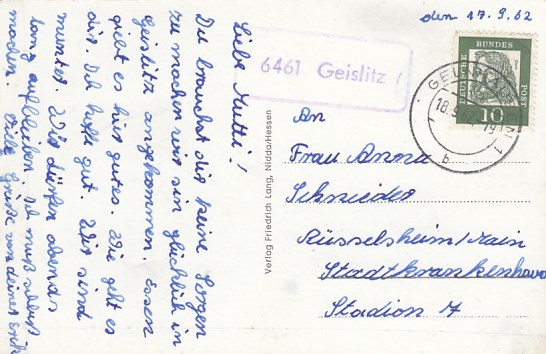 den 17.9.62
Liebe Mutti!
Du brauchst dir keine Sorgen
zu machen wir sin glücklich in
Geislitz angekommen. Essen
giebt es hier gutes. Wie geht es
dir. Ich hoffe gut. Wir sind
munter. Wir dürfen abends
lang aufbleiben. Ich muß schluß
machen. Viele Grüße von deiner Erika
6461 Geislitz
DEUTSCHE BUNDESPOST
10
18.9.
19
b
An
Frau Anna
Schneider
Rüsselsheim/Main
Stadtkrankenhaus
Stadion 7
Verlag Friedrich Lang, Nidda/Hessen